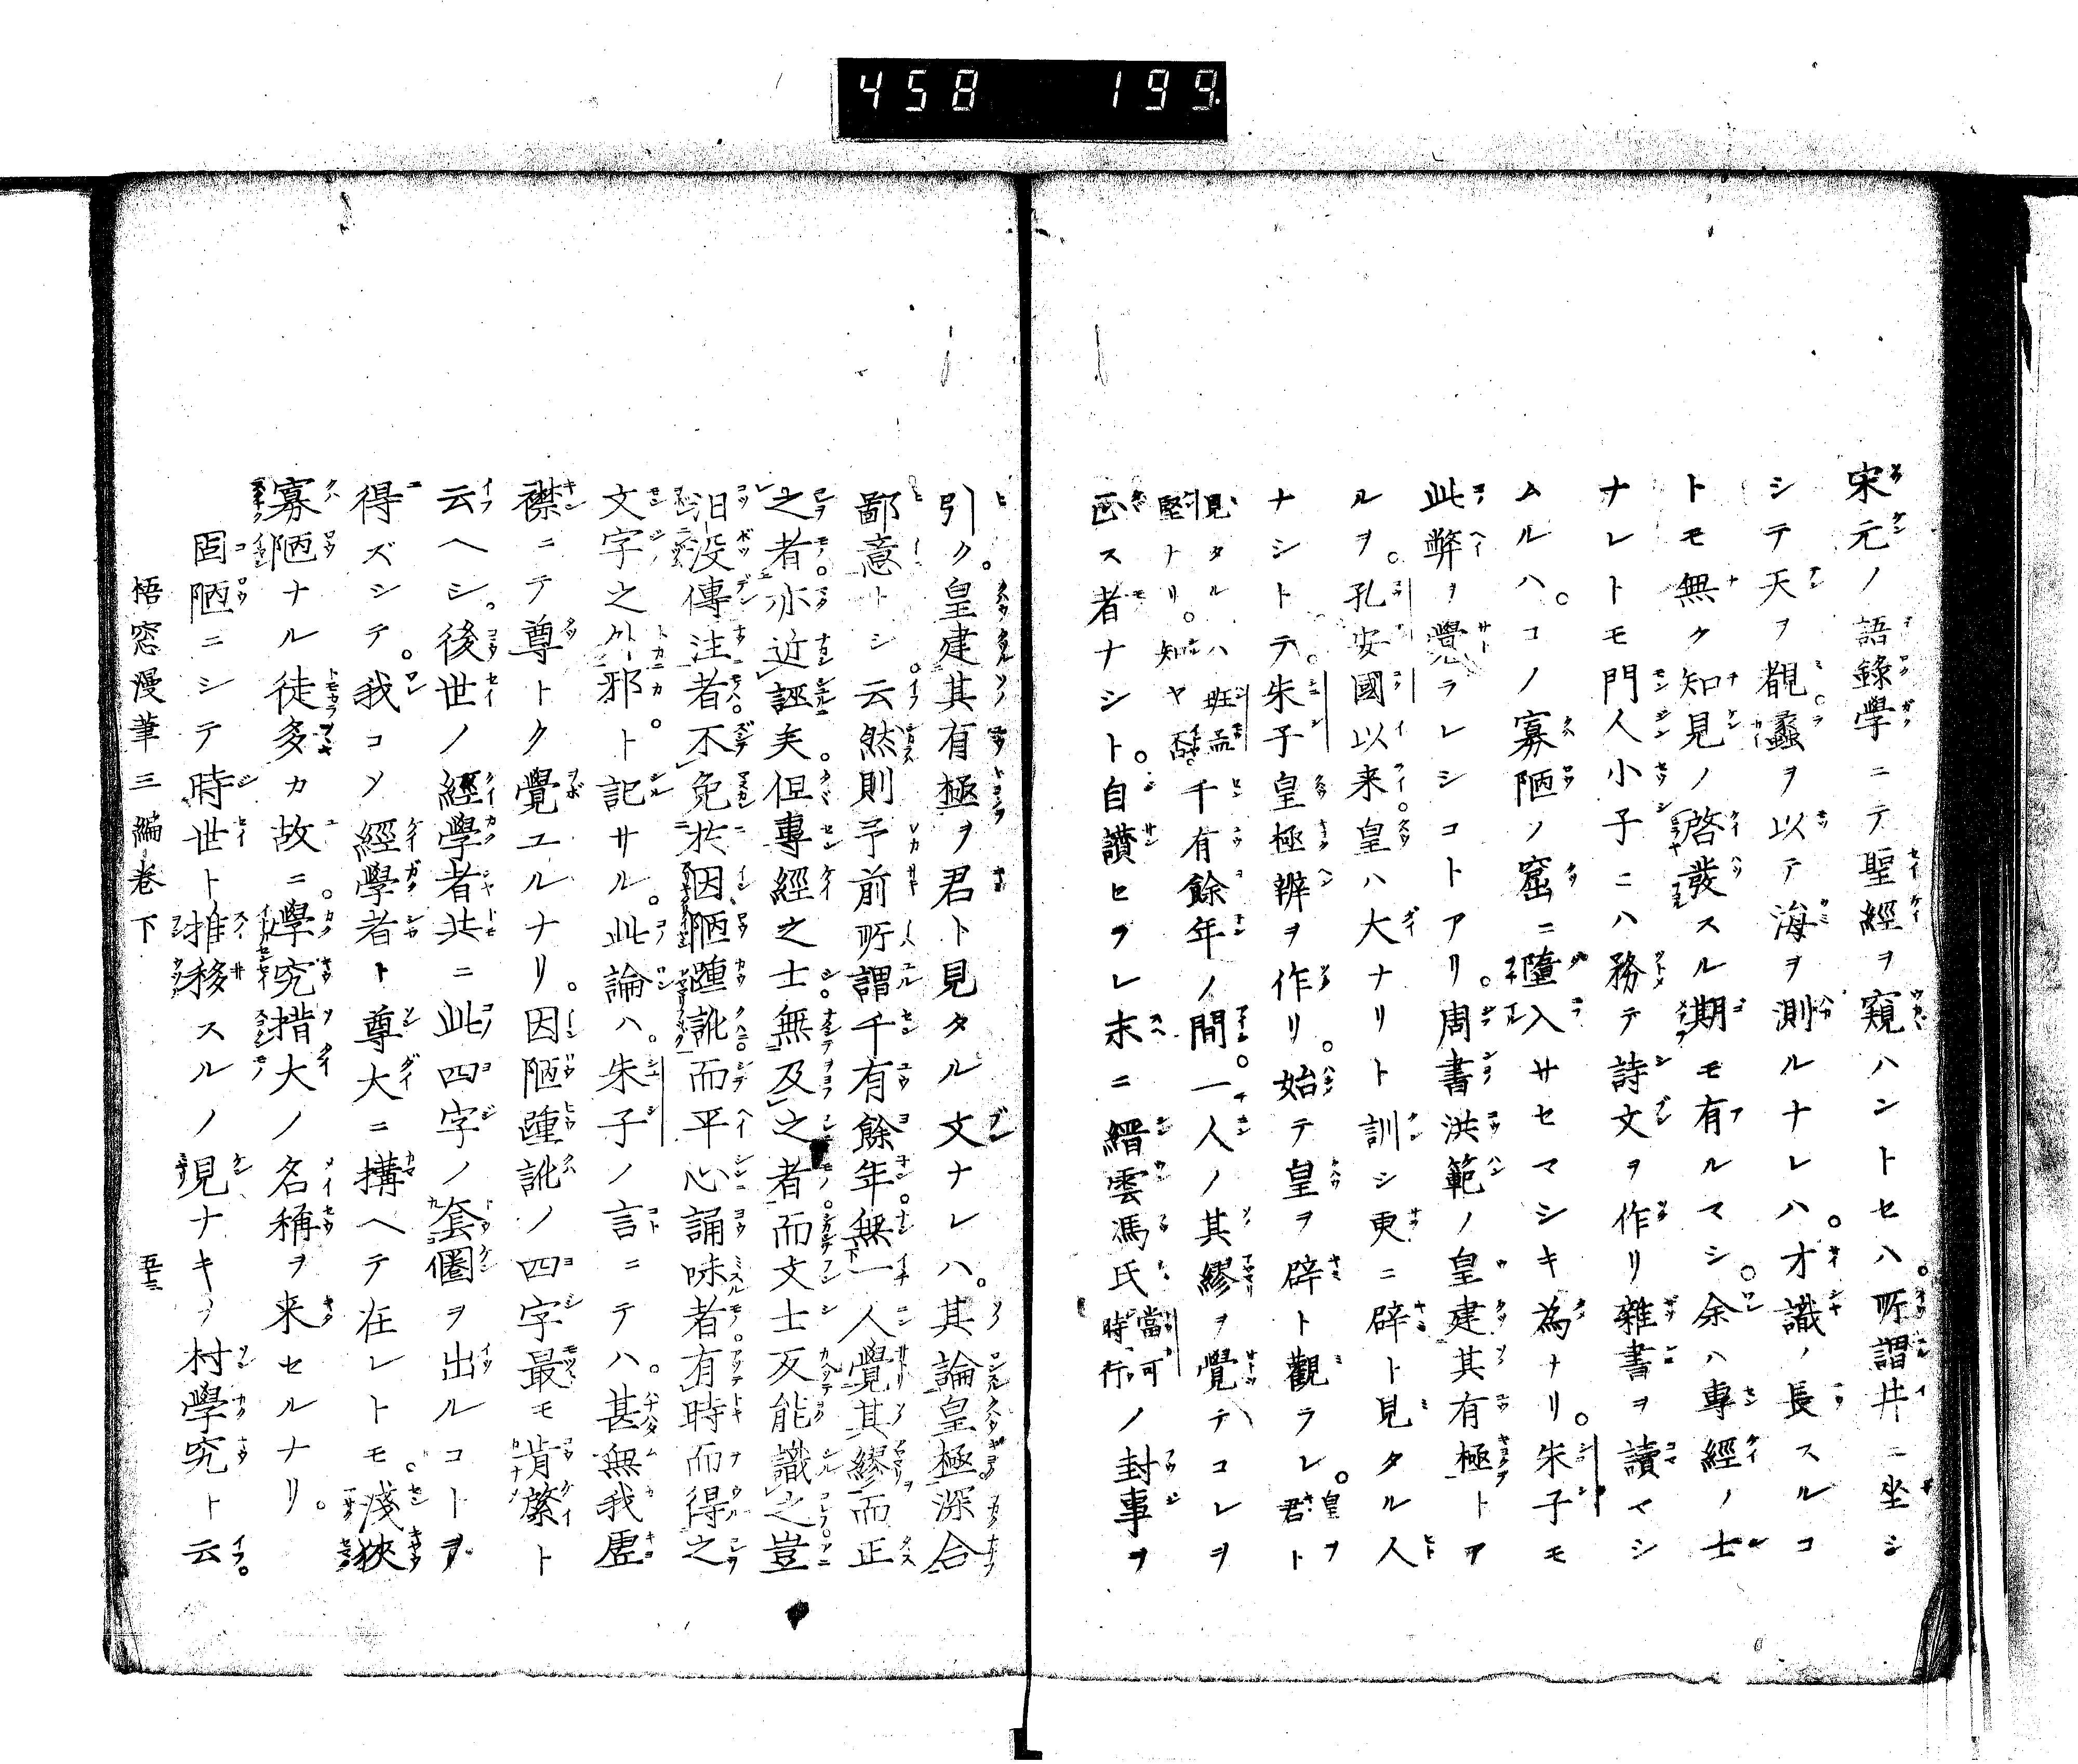 458 199
宋元ノ語錄學ニテ聖經ヲ窺ハントセハ。所謂井ニ坐シ
シテ天ヲ覩。蠡ヲ以テ海ヲ測ルナレハ。才識ノ長スルコ
トモ無ク知見ノ啓發スル期モ有ルマシ。余ハ專經ノ士
ナレトモ門人小子ニハ務テ詩文ヲ作リ雜書ヲ讀マシ
ムルハ。コノ寡陋ノ窟ニ墮入サセマシキ為ナリ。朱子モ
此弊ヲ覺ラレシコトアリ。周書洪範ノ皇建其有極トア
ルヲ。孔安國以来。皇ハ大ナリト訓シ更ニ辟ト見タル人
ナシトテ。朱子皇極辨ヲ作リ。始テ皇ヲ辟ト觀ラレ。皇ヲ君ト
見タルハ班孟堅トナリ。知ヤ否。千有餘年ノ間。一人ノ其繆ヲ覺テコレヲ
正ス者ナシト。自讃セラレ末ニ縉雲馮氏當可時行ノ封事ヲ
引ク。皇建其有極ヲ君ト見タル文ナレハ。其論皇極深合
鄙意トシ云。然則予前所謂千有餘年。無一人覺其繆而正
之者。亦近誣矣。但專經之士。無及之者。而文士反能識之。豈
汨没傳注者。不免於因陋踵訛。而平心誦味者。有時而得之
文字之外邪。ト記サル。此論ハ。朱子ノ言ニテハ。甚無我虛
襟ニテ尊トク覺ユルナリ。因陋踵訛ノ四字最モ肯綮ト
云ヘシ。後世ノ經學者共ニ此四字ノ套圈ヲ出ルコトヲ
得ズシテ。我コソ經學者ト尊大ニ搆ヘテ在レトモ。淺狹
寡陋ナル徒多カ故ニ。學究措大ノ名稱ヲ来セルナリ。
固陋ニシテ時世ト推移スルノ見ナキヲ村學究ト云。
梧窓漫筆三編卷下 五十三